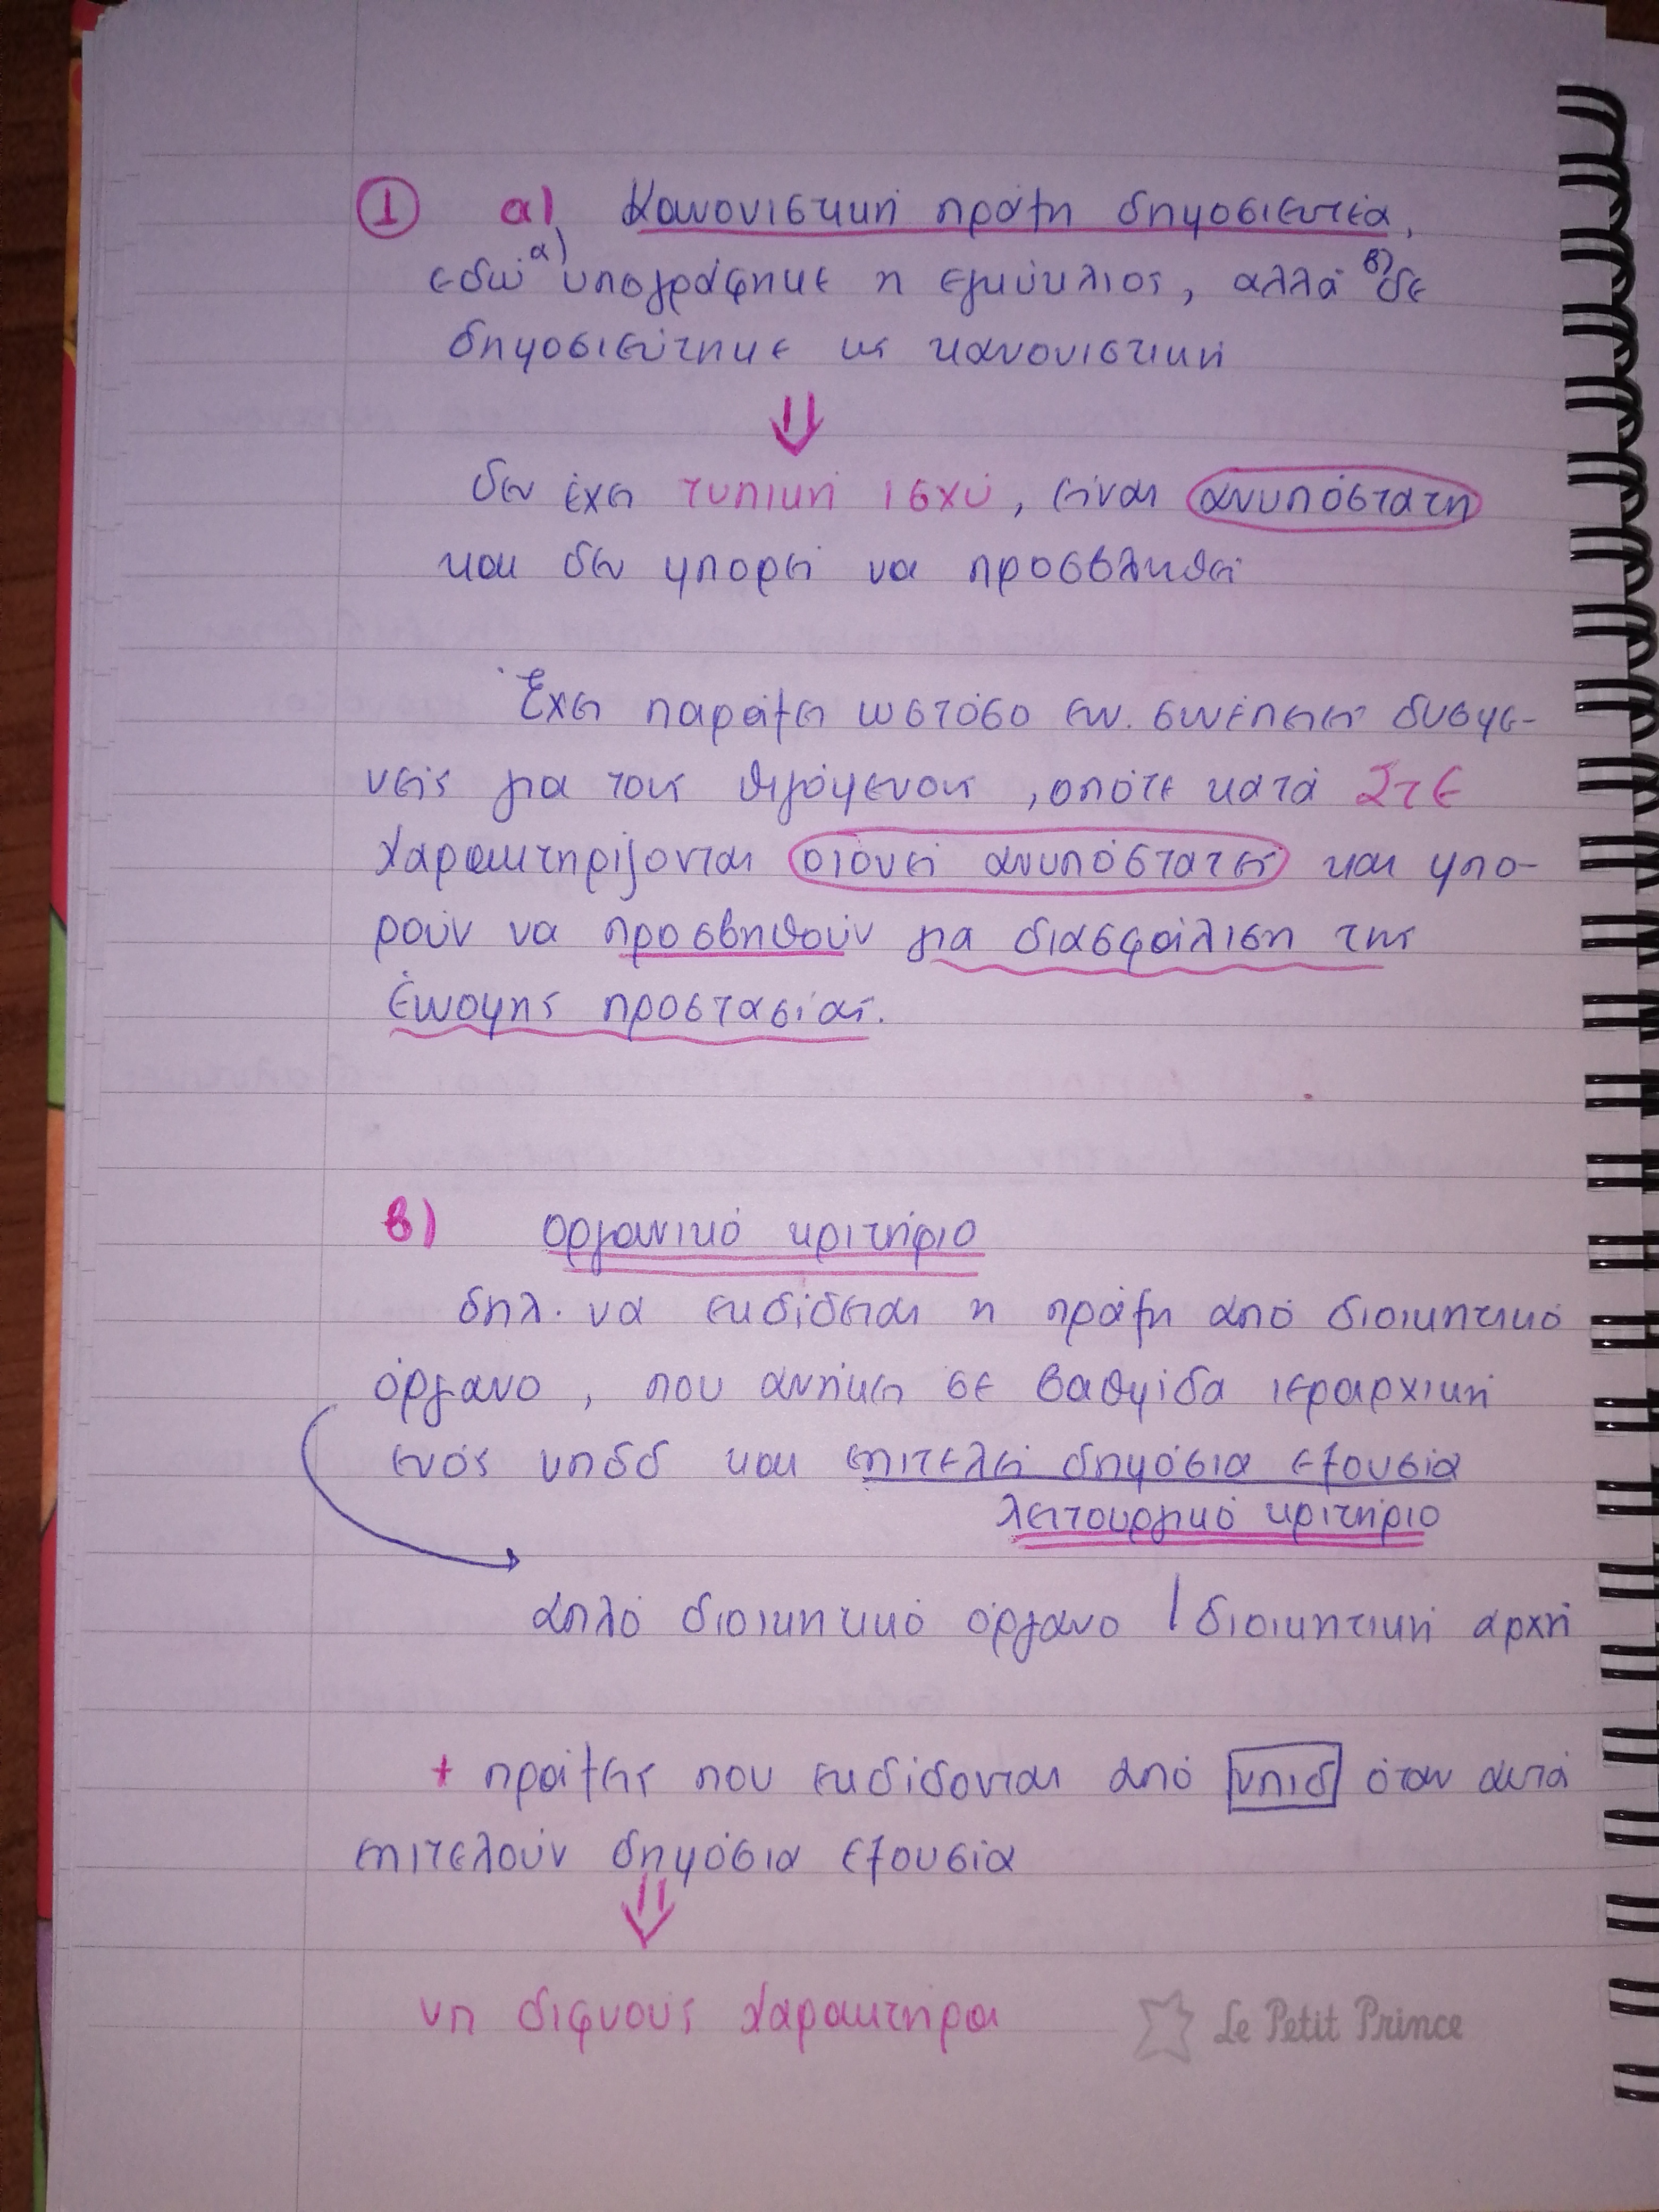 ① α) Κανονιστική πράξη δημοσιευτέα,
εδώ α) υπογράφηκε η εγκύκλιος, αλλά β) δε
δημοσιεύτηκε ως κανονιστική
⇓
δεν έχει τυπική ισχύ, είναι ανυπόστατη
και δεν μπορεί να προσβληθεί
Έχει παράξει ωστόσο ενν. συνέπειες δυσμε-
νείς για τους θιγόμενους, οπότε κατά ΣτΕ
χαρακτηρίζονται οιονεί ανυπόστατες και μπο-
ρούν να προσβηθούν για διασφάλιση της
έννομης προστασίας.
β) οργανικό κριτήριο
δηλ. να εκδίδεται η πράξη από διοικητικό
όργανο, που ανήκει σε βαθμίδα ιεραρχική
ενός νπδδ και επιτελεί δημόσια εξουσία
λειτουργικό κριτήριο
απλό διοικητικό όργανο / διοικητική αρχή
+ πράξεις που εκδίδονται από νπιδ όταν αυτά
επιτελούν δημόσια εξουσία
⇓
νπ διφυούς χαρακτήρα
Le Petit Prince